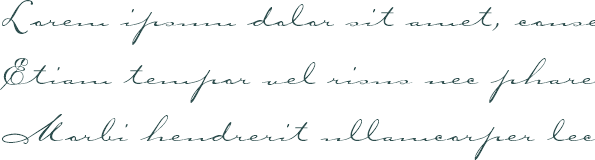 Lorem ipsum dolor sit amet, conse
Etiam tempor vel risus nec phare
Morbi hendrerit ullamcorper lec